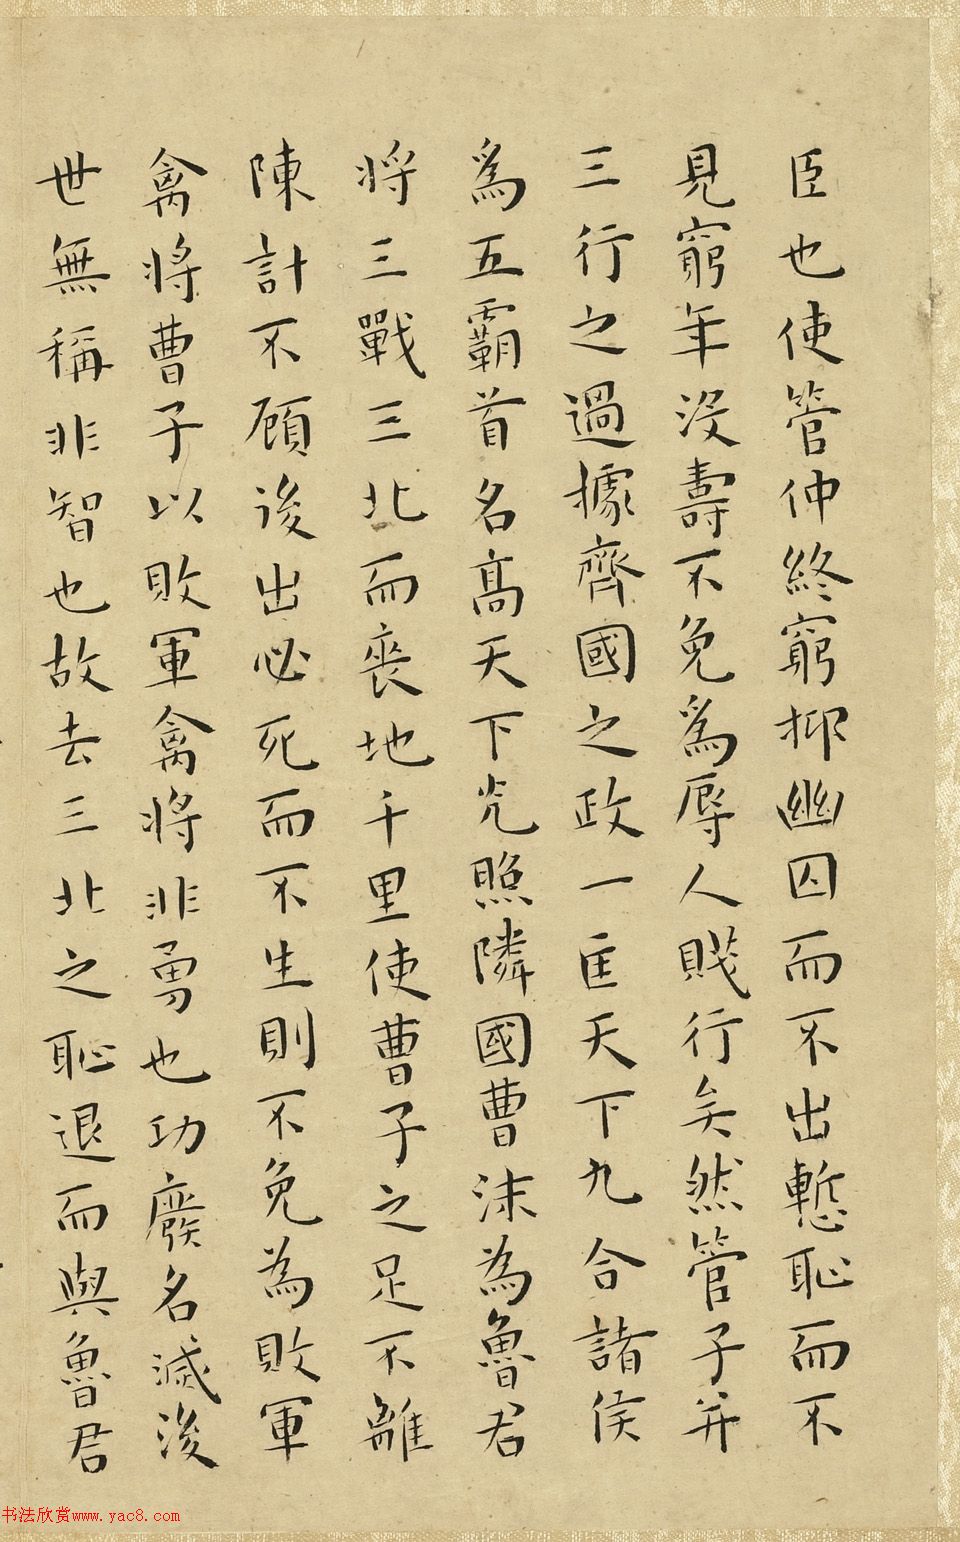 臣也使管仲終窮抑幽囚而不出慙恥而不
見窮年没壽不免爲辱人賤行矣然管子并
三行之過據齊國之政一匡天下九合諸侯
爲五霸首名高天下光照隣國曹沫為魯君
将三戰三北而喪地千里使曹子之足不離
陳計不顧後出必死而不生則不免為敗軍
禽将曹子以敗軍禽将非勇也功廢名滅後
世無稱非智也故去三北之恥退而與魯君
书法欣赏www.yac8.com